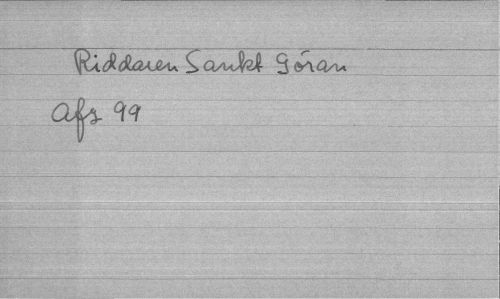 Riddaren Sankt Göran
Afz 99